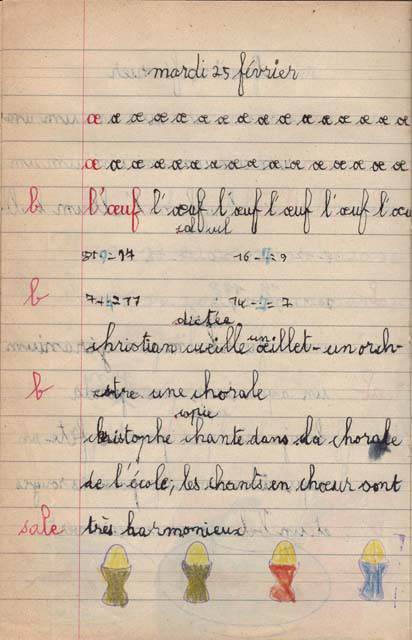 mardi 25 février
œ œ œ œ œ œ œ œ œ œ œ œ œ œ œ
œ œ œ œ œ œ œ œ œ œ œ œ œ œ œ
b l'œuf l'œuf l'œuf l'œuf l'œuf l'œu
calcul
9=17 16-7=9
b 7+4=11 14-7=7
dictée
christian cueille un œillet-un orch-
b estre une chorale
copie
christophe chante dans la chorale
de l'école, les chants en chœur sont
sale très harmonieux